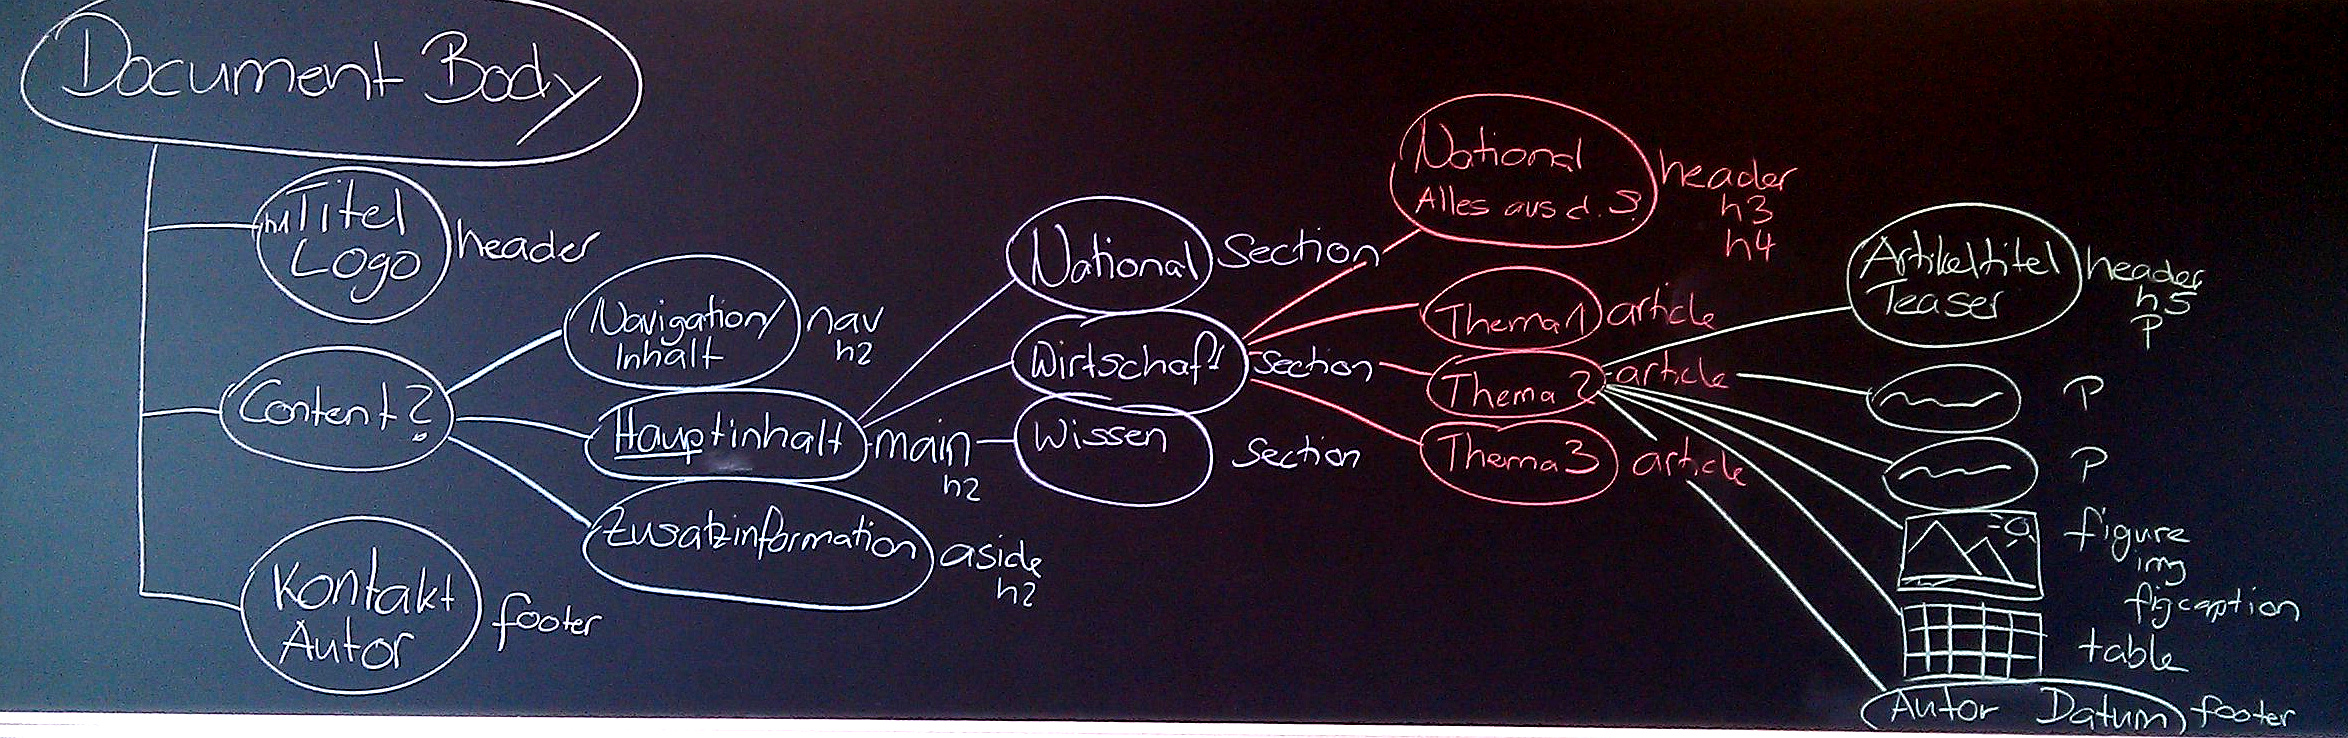 Document Body
h1 Titel
Logo
header
Content?
Kontakt
Autor
footer
Navigation/
Inhalt
nav
h2
Hauptinhalt
main
h2
Zusatzinformation
aside
h2
National
Section
Wirtschaft
Section
Wissen
Section
National
Alles aus d. S.
header
h3
h4
Thema 1
article
Thema 2
article
Thema 3
article
Artikeltitel
Teaser
header
h5
p
p
p
figure
img
figcaption
table
Autor Datum
footer